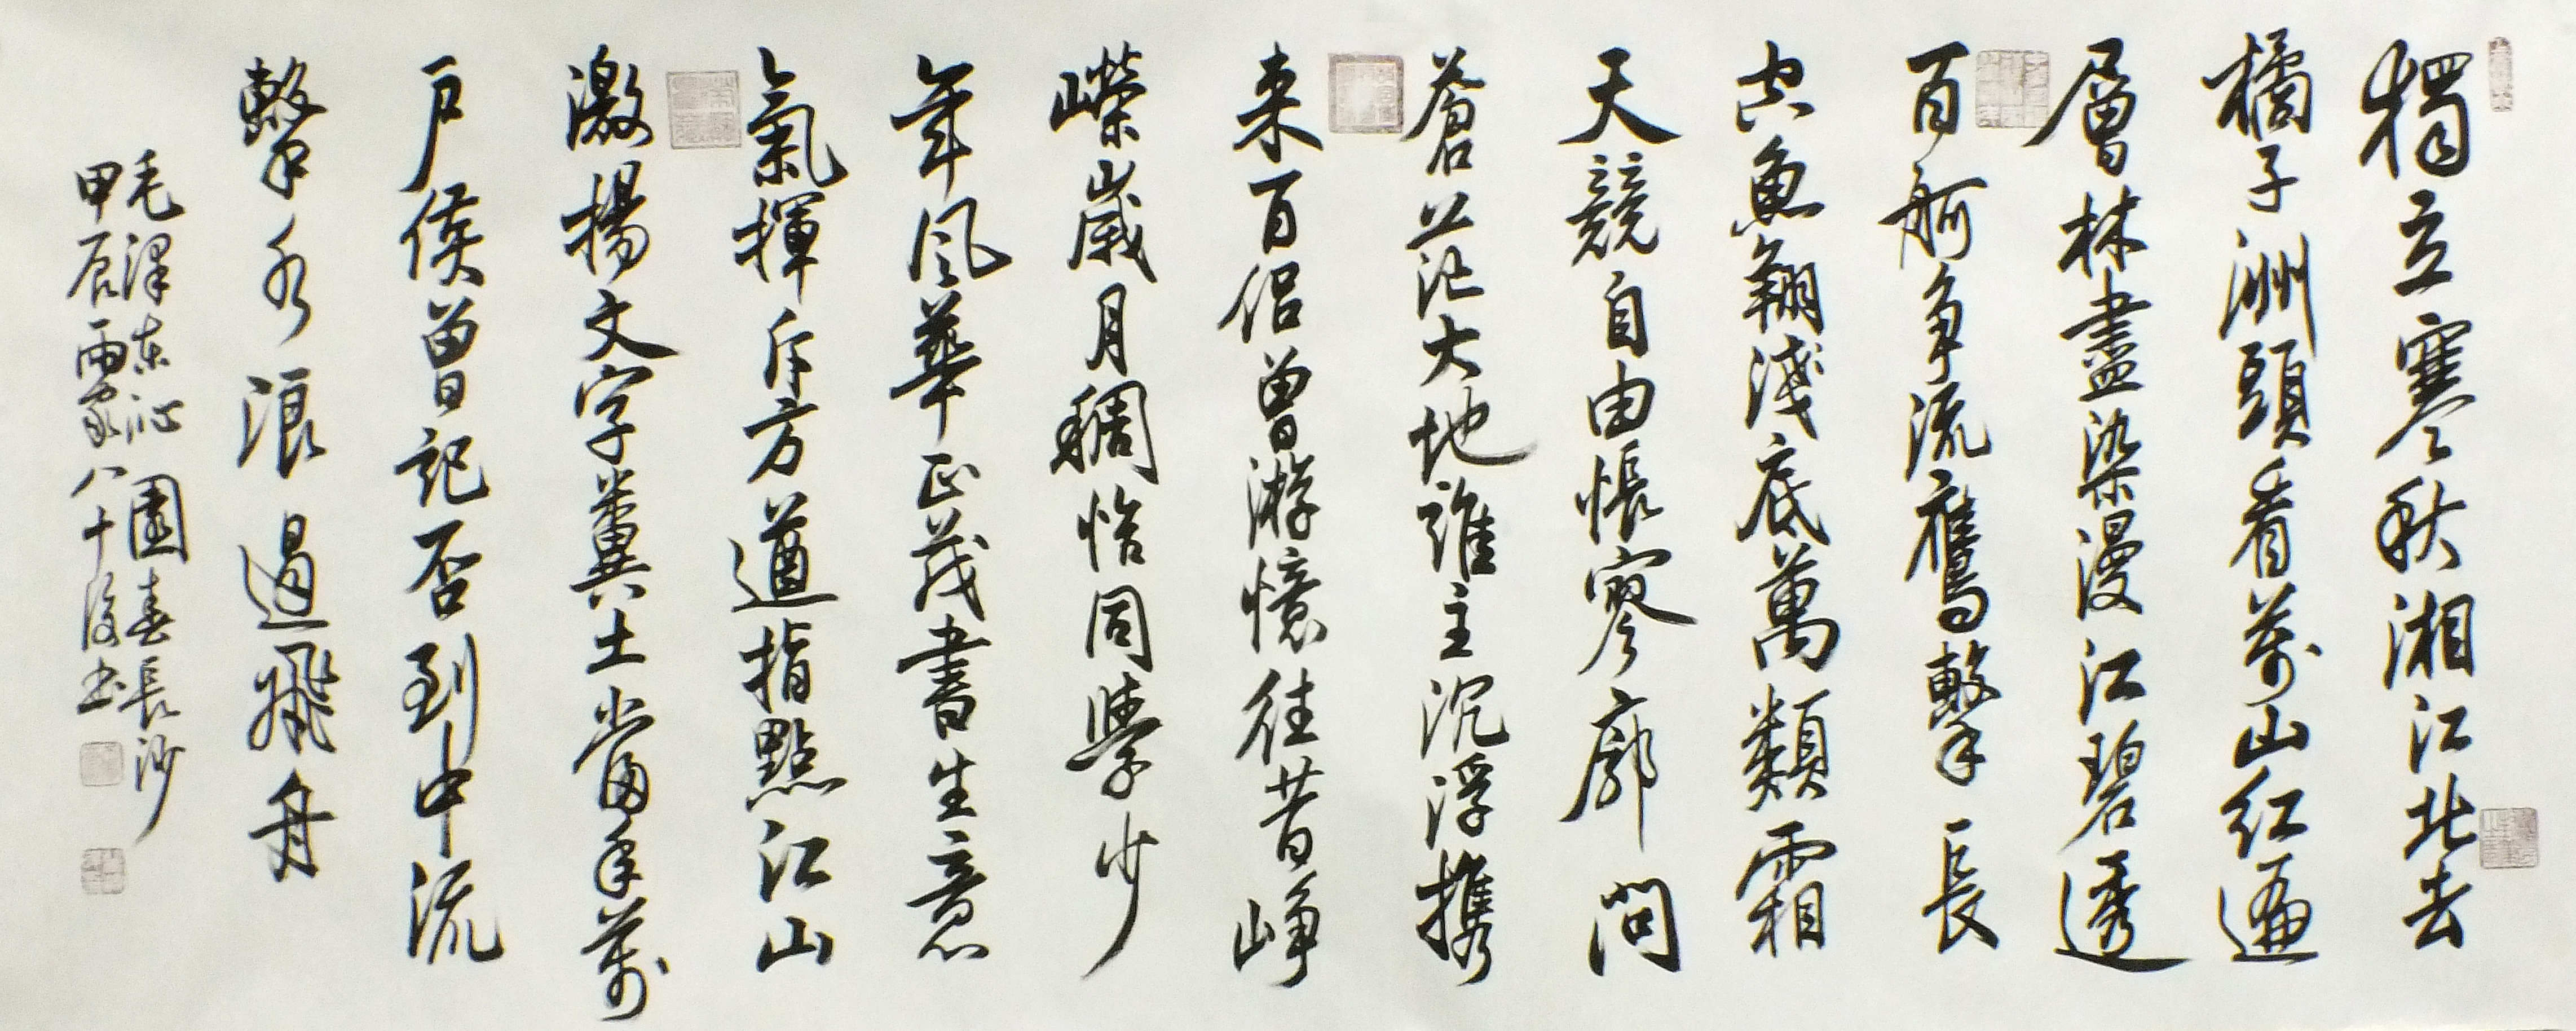 獨立寒秋湘江北去
橘子洲頭看萬山紅遍
層林盡染漫江碧透
百舸争流鷹擊長
空魚翔淺底萬類霜
天競自由悵寥廓問
蒼茫大地誰主沉浮携
来百侣曾游憶往昔峥
嶸歲月稠恰同學少
年風華正茂書生意
氣揮斥方遒指點江山
激揚文字糞土當年萬
户侯曾記否到中流
擊水浪遏飛舟
毛澤東沁園春長沙
甲辰雨八十後書